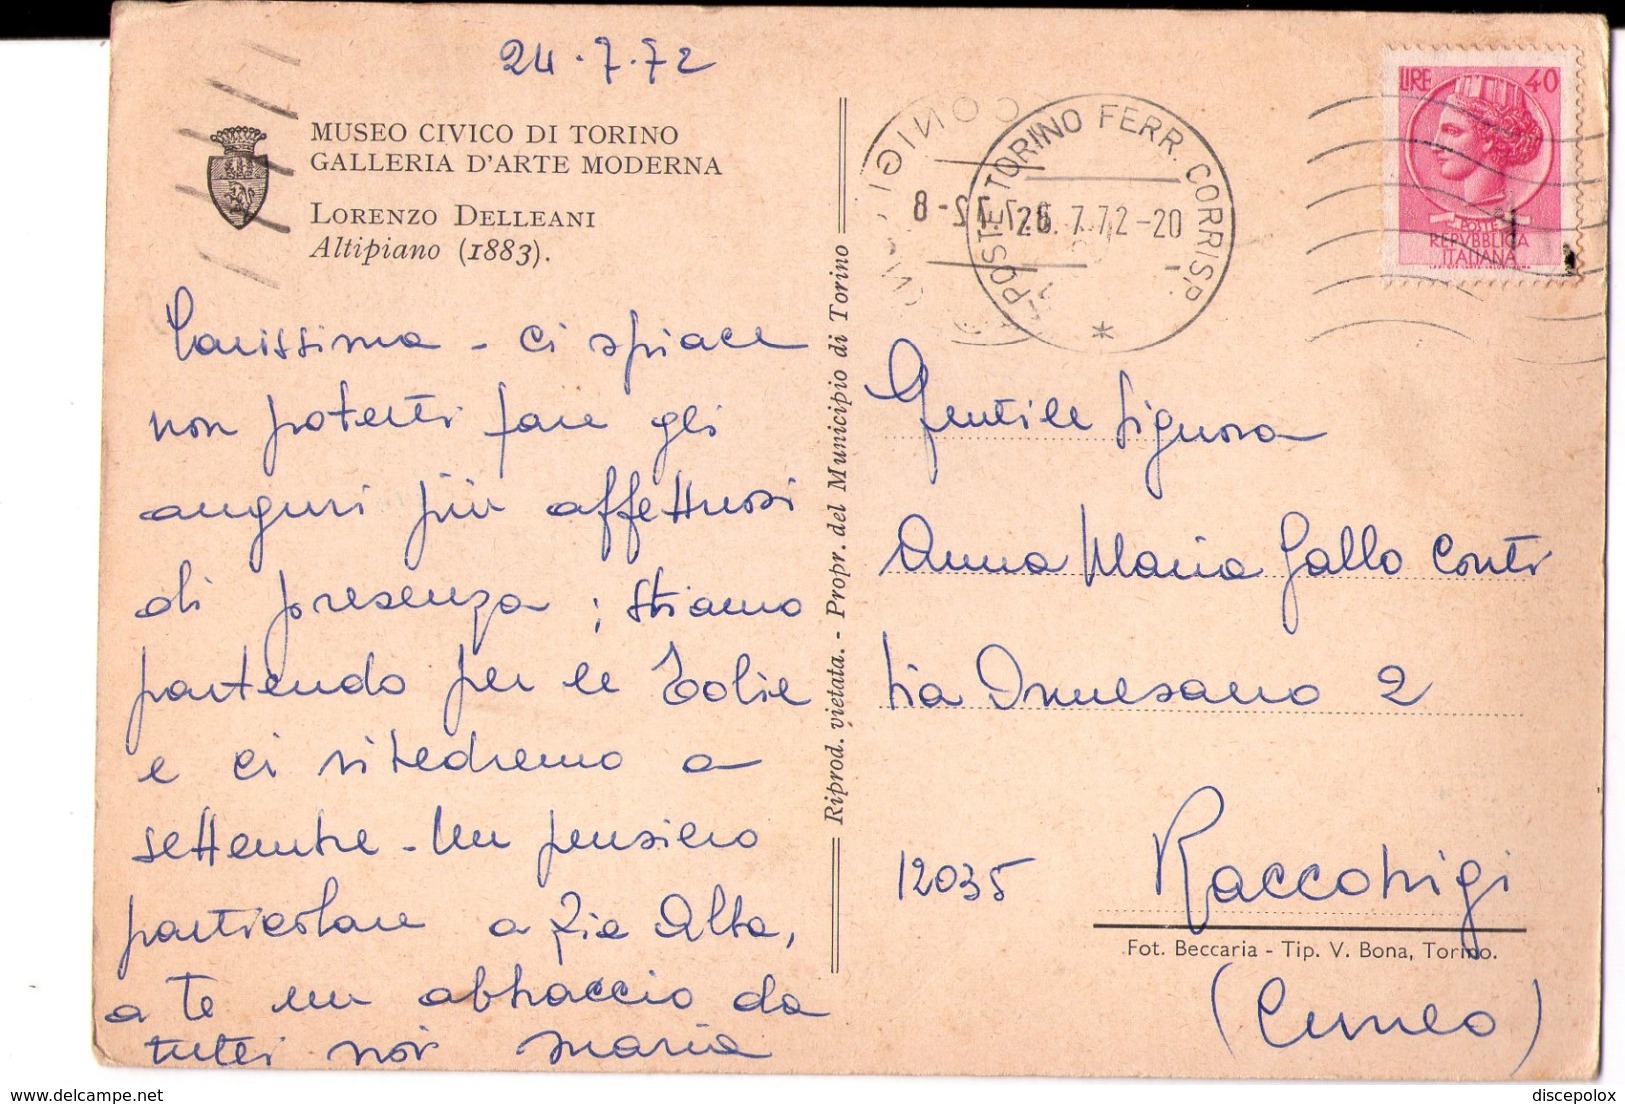 24.7.72
MUSEO CIVICO DI TORINO
GALLERIA D'ARTE MODERNA
LORENZO DELLEANI
Altipiano (1883).
Carissima - ci spiace
non poterti fare gli
auguri più affettuosi
di presenza; stiamo
partendo per le Eolie
e ci rivedremo a
settembre - Un pensiero
particolare a zia Alba,
a te un abbraccio da
tutti noi Maria
Riprod. vietata. - Propr. del Municipio di Torino
POSTE TORINO FERR. CORRISP.
7.72-20
LIRE 40
POSTE
REPVBBLICA
ITALIANA
Gentile Signora
Anna Maria Gallo Conti
Via Ormesano 2
12035 Racconigi
Fot. Beccaria - Tip. V. Bona, Torino.
(Cuneo)
discepolox